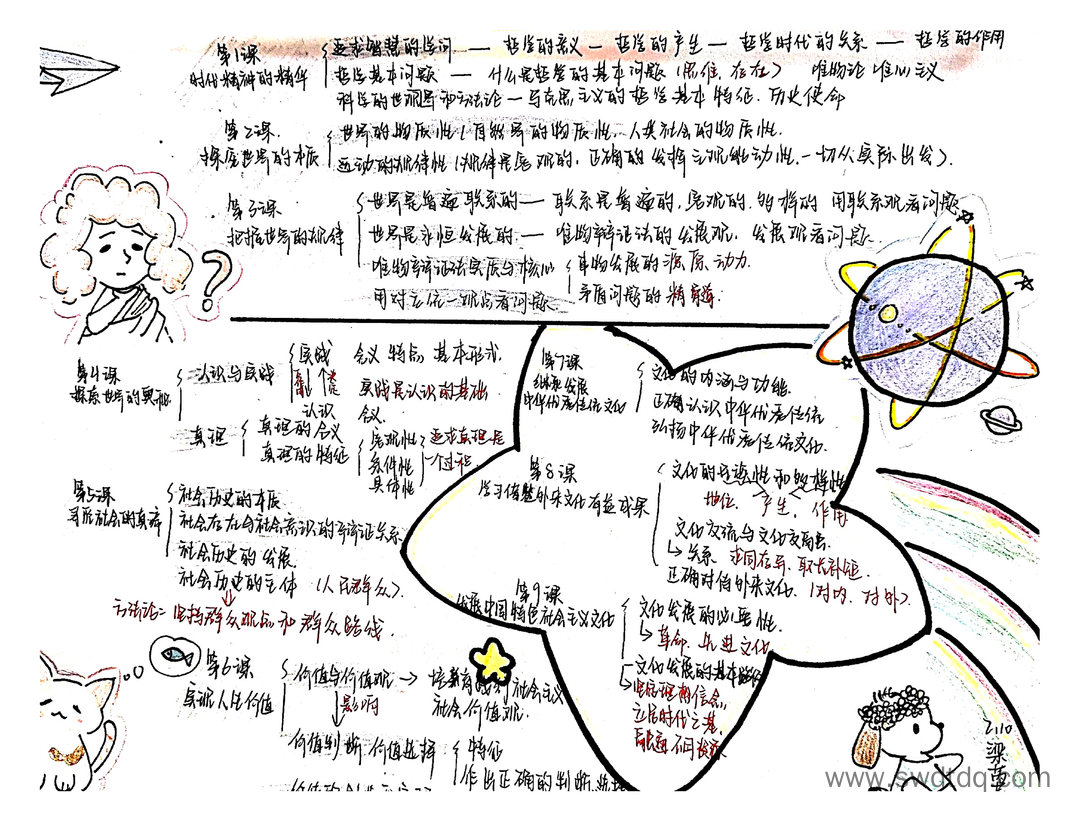 第1课
时代精神的精华
追求智慧的学问 — 哲学的意义 — 哲学的产生 — 哲学时代的关系 — 哲学的作用
哲学基本问题 — 什么是哲学的基本问题（思维、存在） 唯物论 唯心主义
科学的世界观和方法论 — 马克思主义的哲学基本特征、历史使命
第2课
探究世界的本质
世界的物质性（自然界的物质性、人类社会的物质性.
运动的规律性（规律是客观的，正确的发挥主观能动性，一切从实际出发）.
第3课
把握世界的规律
世界是普遍联系的 — 联系是普遍的，客观的，多样的 用联系观看问题
世界是永恒发展的 — 唯物辩证法的发展观，发展观看问题
唯物辩证法实质与核心
事物发展的源泉、动力
用对立统一观点看问题
矛盾问题的精髓
第4课
探索世界的奥秘
认识与实践
实践 含义 特点 基本形式
实践是认识的基础
认识
含义
真理
真理的含义
真理的特征
客观性
条件性
具体性
追求真理是
一个过程
第5课
寻觅社会的真谛
社会历史的本质
社会存在与社会意识的辩证关系
社会历史的发展
社会历史的主体（人民群众）
方法论：坚持群众观点和群众路线.
第6课
实现人生价值
价值与价值观 → 培养有践行社会主义
社会价值观.
影响
价值判断 价值选择
特征
作出正确的判断选择
第7课
继承发展
中华优秀传统文化
文化的内涵与功能
正确认识中华优秀传统
弘扬中华优秀传统文化.
第8课
学习借鉴外来文化有益成果
文化的民族性和多样性
地位、产生、作用
文化交流与文化交融
关系 求同存异、取长补短.
正确对待外来文化.（对内、对外）.
第9课
发展中国特色社会主义文化
文化发展的必要性.
革命、先进文化
文化发展的基本路径
坚定理想信念
立足时代之基
2110
www.swdtdq.com